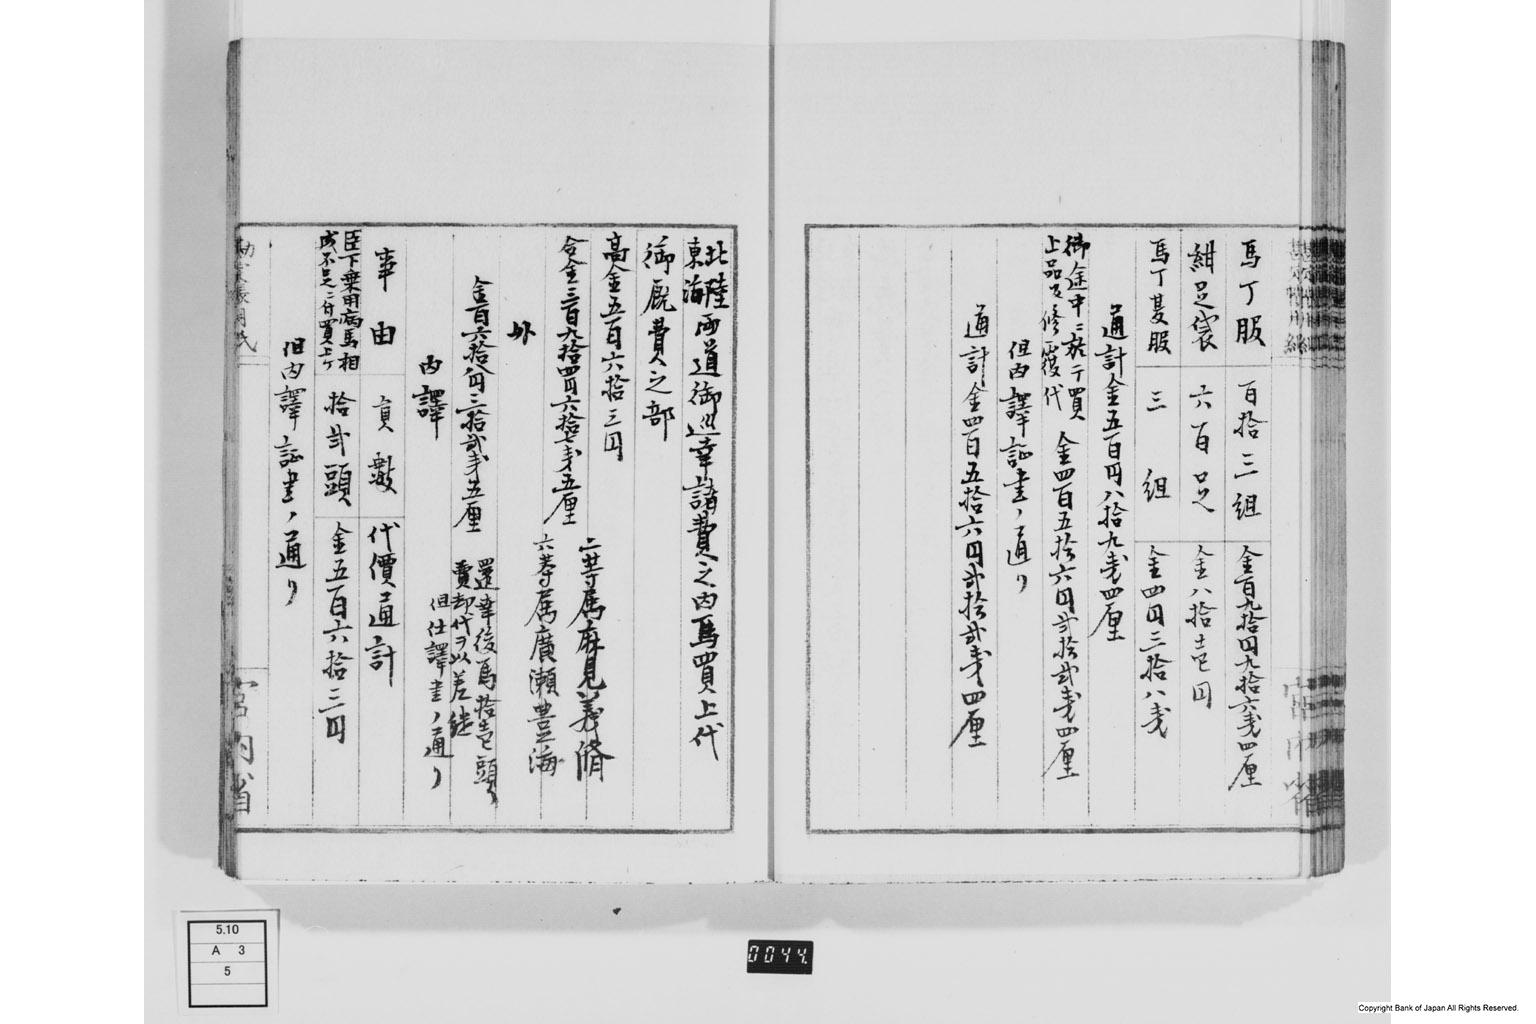 馬丁服 百拾三組 金百九拾四円九拾六銭四厘
紺足袋 六百足 金八拾壱円
馬丁夏服 三組 金四円三拾八銭
通計金五百円八拾九銭四厘
御途中ニ於テ買
上品及修覆代 金四百五拾六円弐拾弐銭四厘
但内譯証書ノ通リ
通計金四百五拾六円弐拾弐銭四厘
北陸
東海 両道御巡幸諸費之内馬買上代
御厩費之部
高金五百六拾三円
合金三百九拾四円六拾七銭五厘
二等属麻見義脩
六等属廣瀬豊海
外
金百六拾八円三拾弐銭五厘
還幸後馬拾壱頭
賣却代ヲ以差継
但仕譯書ノ通リ
内譯
事由 員數 代價通計
臣下乗用病馬相
成不足ニ付買上ケ 拾弐頭 金五百六拾三円
但内譯証書ノ通リ
宮内省
5.10
A 3
5
0044.
Copyright Bank of Japan All Rights Reserved.